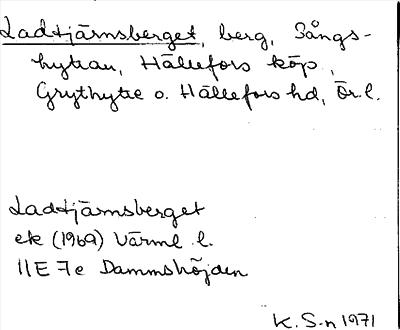 Ladtjärnsberget, berg, Sångs-
hyttan, Hällefors köp,
Grythytte o. Hällefors hd, Ör. l.
Ladtjärnsberget
ek (1969) Värml. l.
11E 7e Dammshöjden
K. S-n 1971